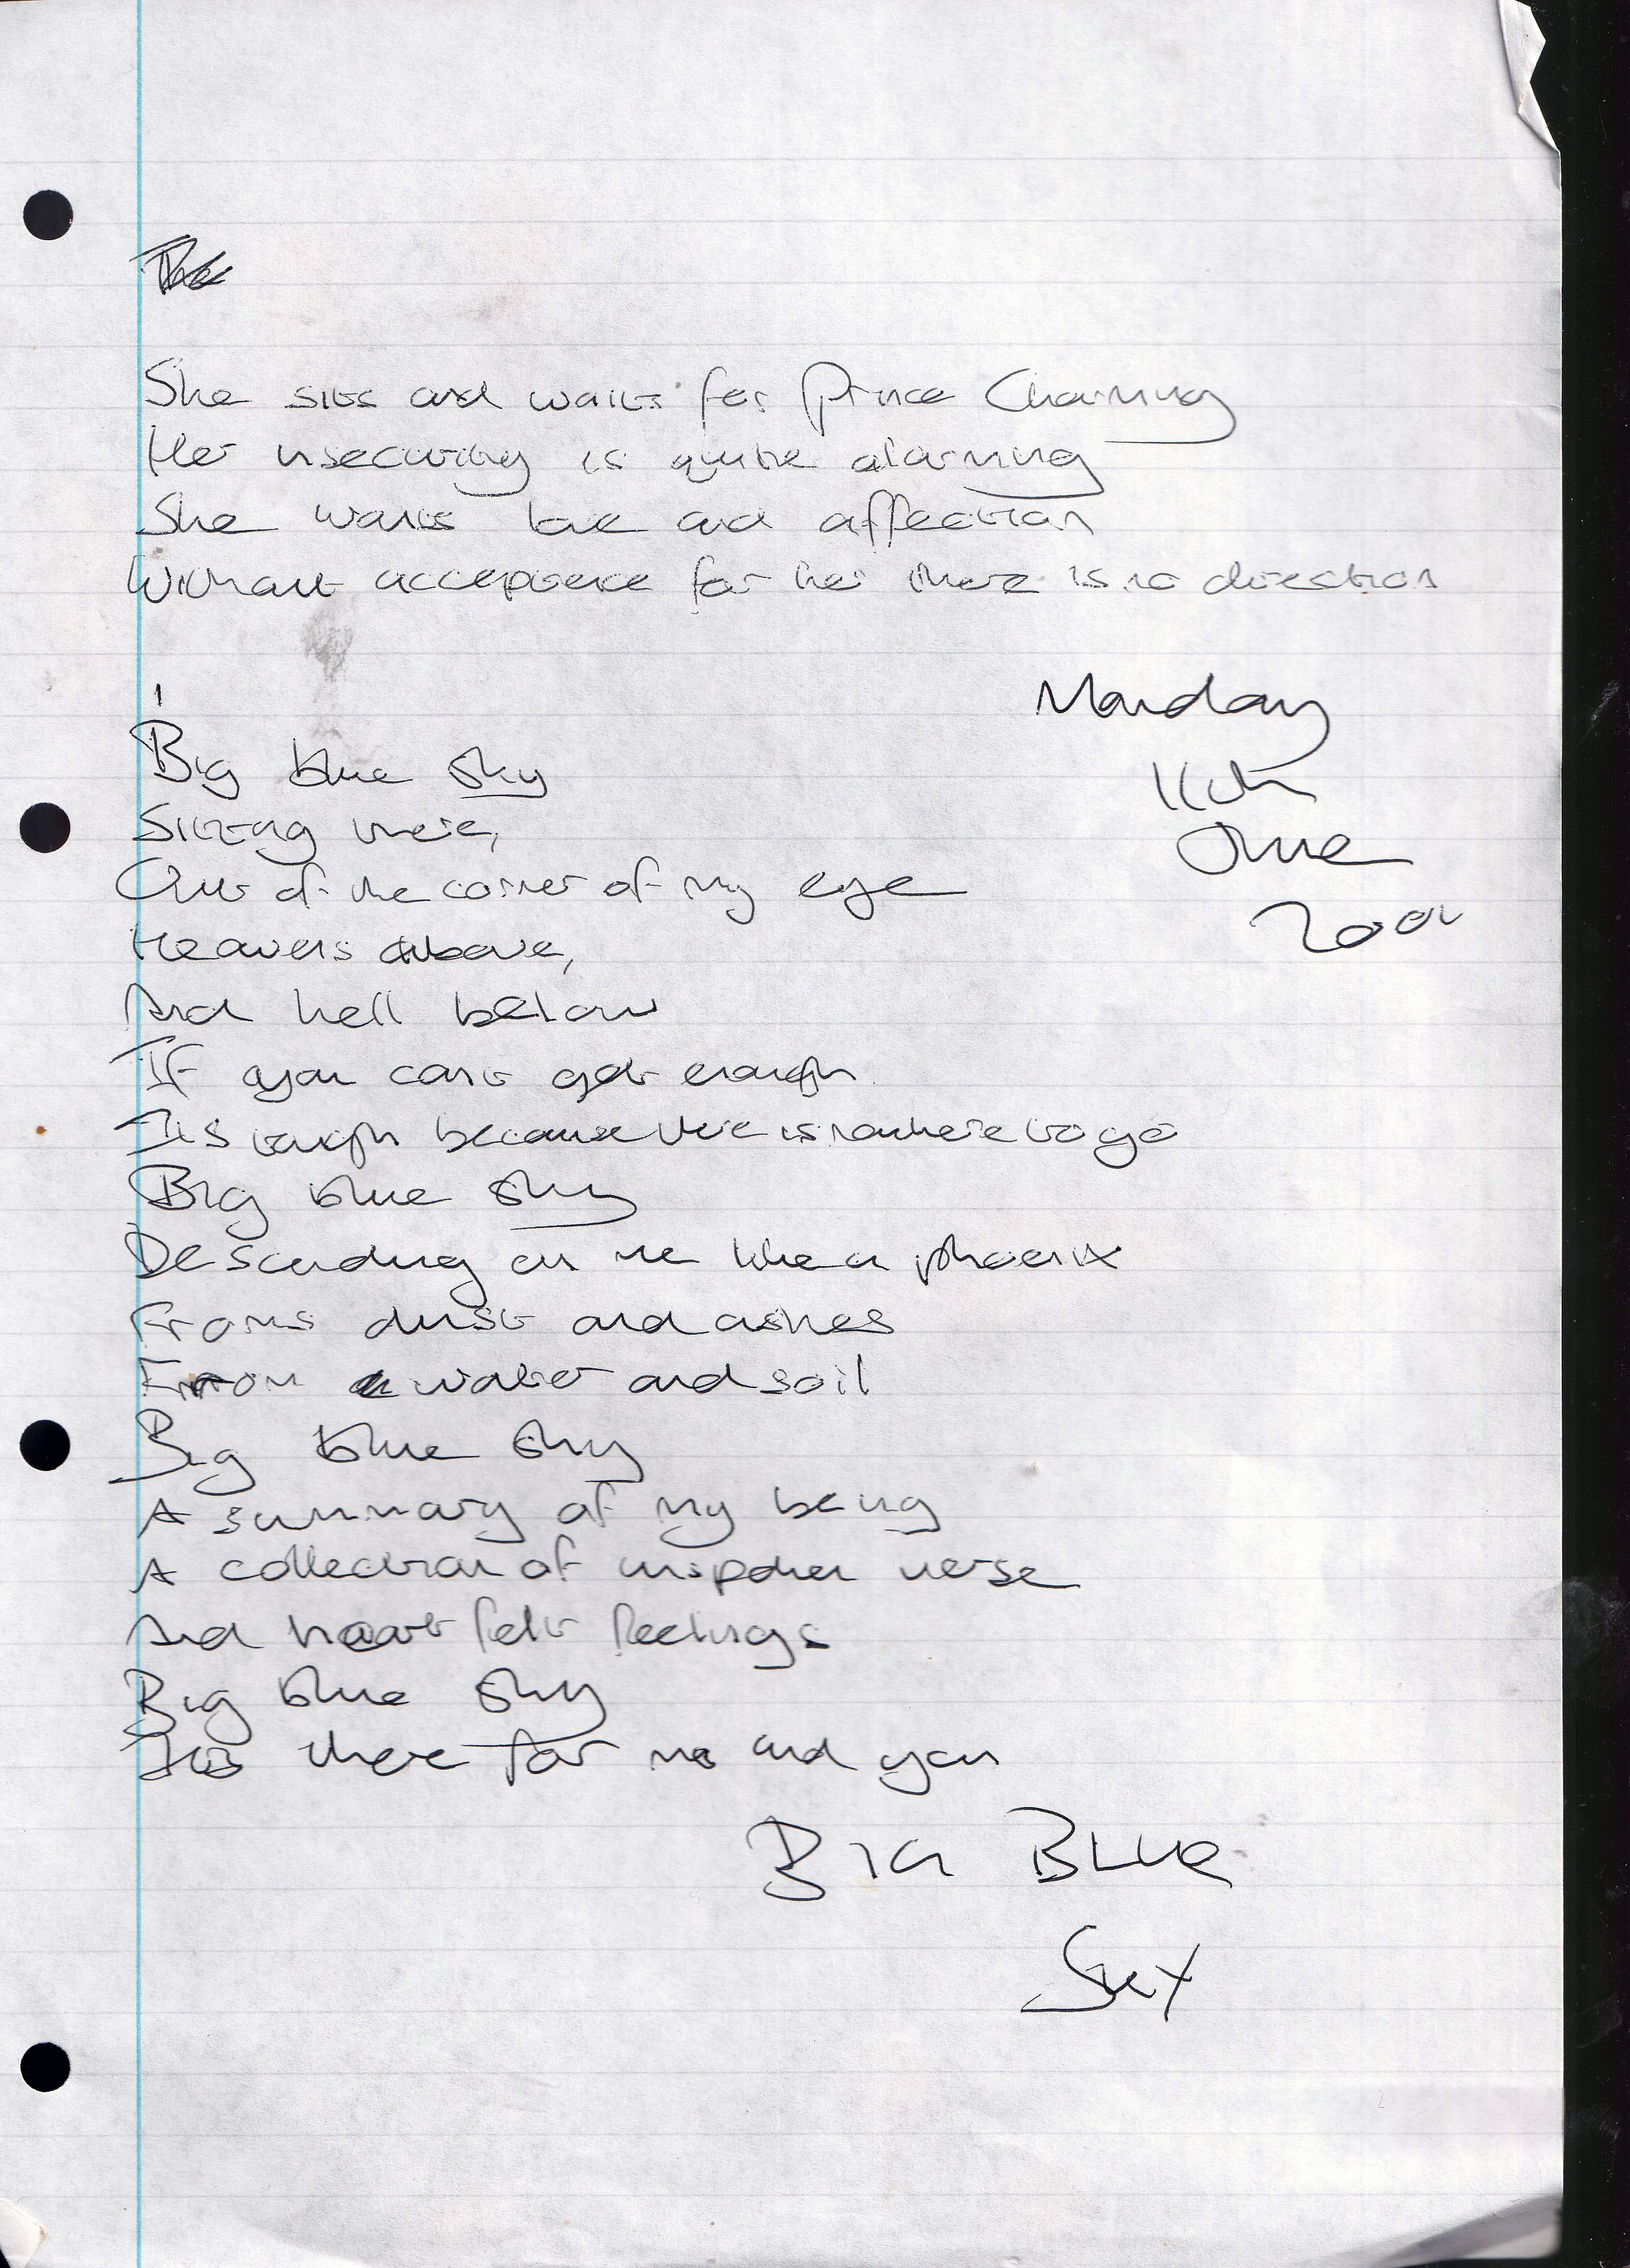 She sits and waits for Prince Charming
Her insecurity is quite alarming
She wants love and affection
Without acceptance for her there is no direction
Monday
11th
June
2001
Big blue sky
Sitting there,
Out of the corner of my eye
Heavens above,
And hell below
If you cant get enough
Its tough because there is nowhere to go
Big blue sky
Descending on me like a phoenix
From dust and ashes
From water and soil
Big blue sky
A summary of my being
A collection of unspoken verse
And heart felt feelings
Big blue sky
Its there for me and you
BIG BLUE